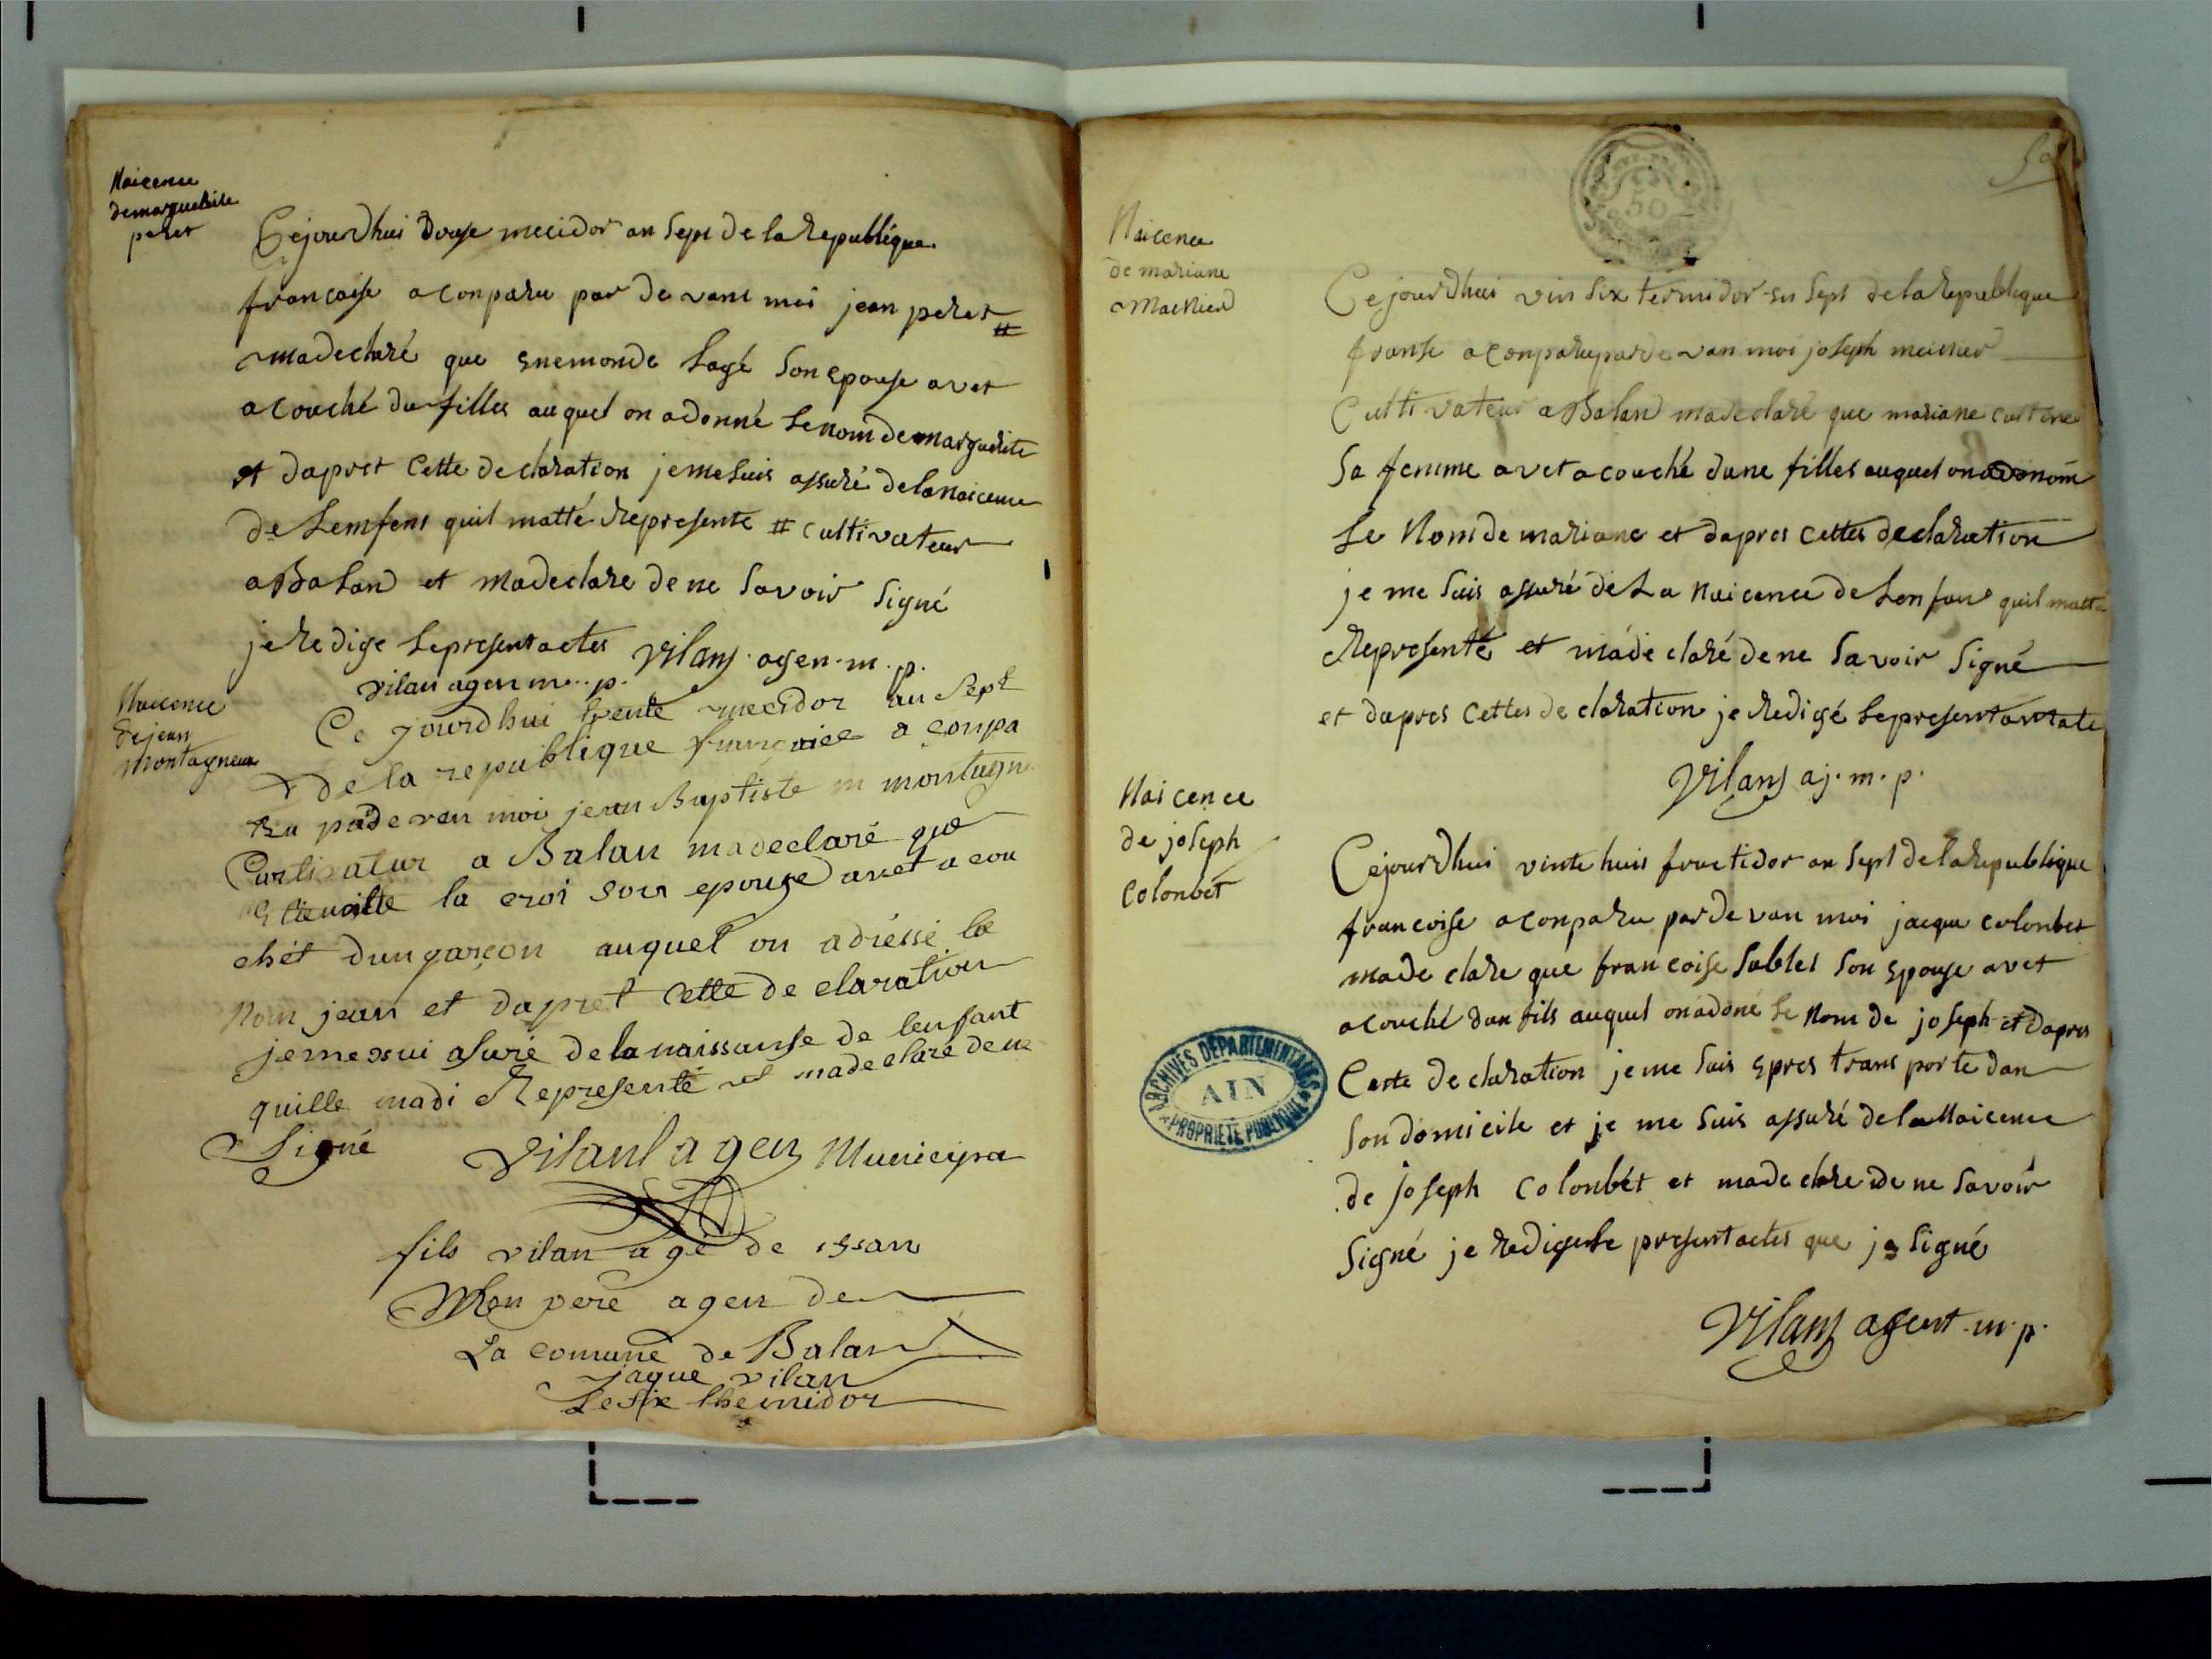 Naicence
de marguerite
peret
Cejourdhui douse mecidor an Sept de la Republique
francoise aconparu par de vant moi jean peret #
madeclaré que enemonde Sagé Son epouse avet
acouché du filles auquel on adonné Le nom de marguerite
et dapret Cette declaration jeme Suis assuré de la naicence
de Lemfent quil matté Represente # cultivateur
a Balan et madeclare de ne Savoir Signé
je Redige Lepresent actes Vilans agen. m. p.
vilan agen m. p.
Naicence
de jean
montagneux
Ce jourdhui trente mecidor an Sept
de la republique françaiee a conpa
Ru pade ven moi jean Baptiste m montagn
Cartivatur a Balan madeclaré que
la croi son epouse avet a cou
chét dun garçon auquel on adréssé le
Nom jean et dapret cette de claration
jemessui asuré de la naissanse de lenfant
quille madi Representé et madeclaré de ne
Signé Vilanl agen Municipa
fils vilan agé de
Mon pere agen de
La comune de Balan
jaque vilan
Le six themidor
50
Naicence
de mariane
Maenier
Cejourdhui vin Six termidor en Sept dela Republique
franse aconparu parde van moi joseph meunier
Cultivateur a Balan madeclaré que mariane
Sa femme avet acouché dune filles auquel on adonom
Le Nom de mariane et dapres cettes declaration
je me Suis assuré de La Naicence de Lenfan quil matt
Représenté et madeclaré de ne Savoir Signé
et dapres Cettes declaration je Redigé Lepresent
Vilans aj. m. p.
Naicence
de joseph
Colonbet
Cejourdhui vinte huis fructidor an Sept dela Republique
francoise aconparu par de van moi jacque colonbet
madeclare que francoise Sables Son epouse avet
acouché dun fils auquel on adoné Le Nom de joseph et dapres
Cette declaration jeme Suis epres trans porte dan
Son domicile et je me Suis assuré de la Naicence
de joseph Colonbét et madeclare de ne Savoir
Signé je Redige Le present actes que je Signé
Vilans agent. m. p.
ARCHIVES DÉPARTEMENTALES
AIN
PROPRIÉTÉ PUBLIQUE